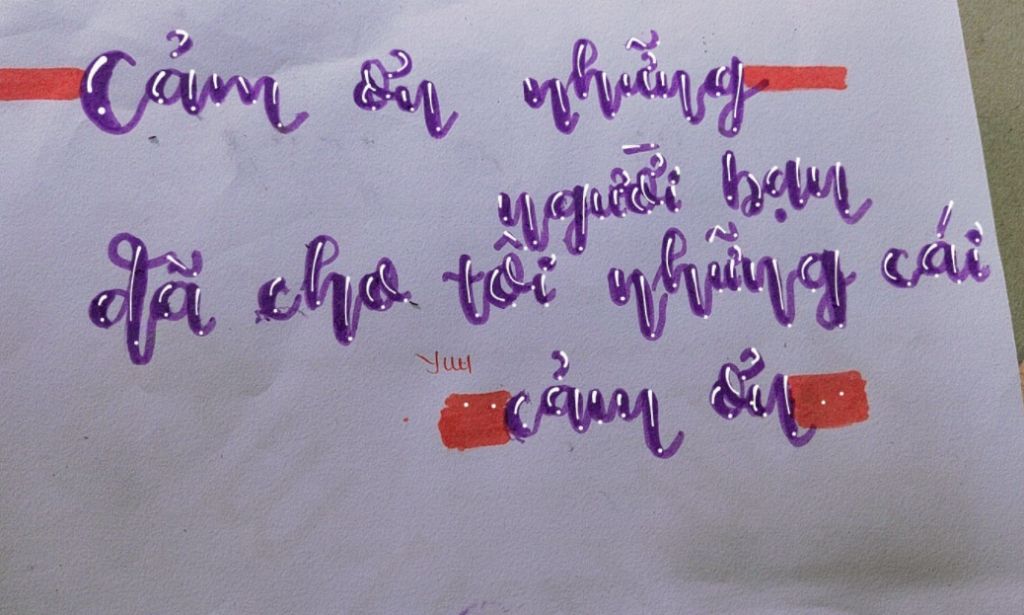 Cảm ơn những
người bạn
đã cho tôi những cái
Yuu
cảm ơn